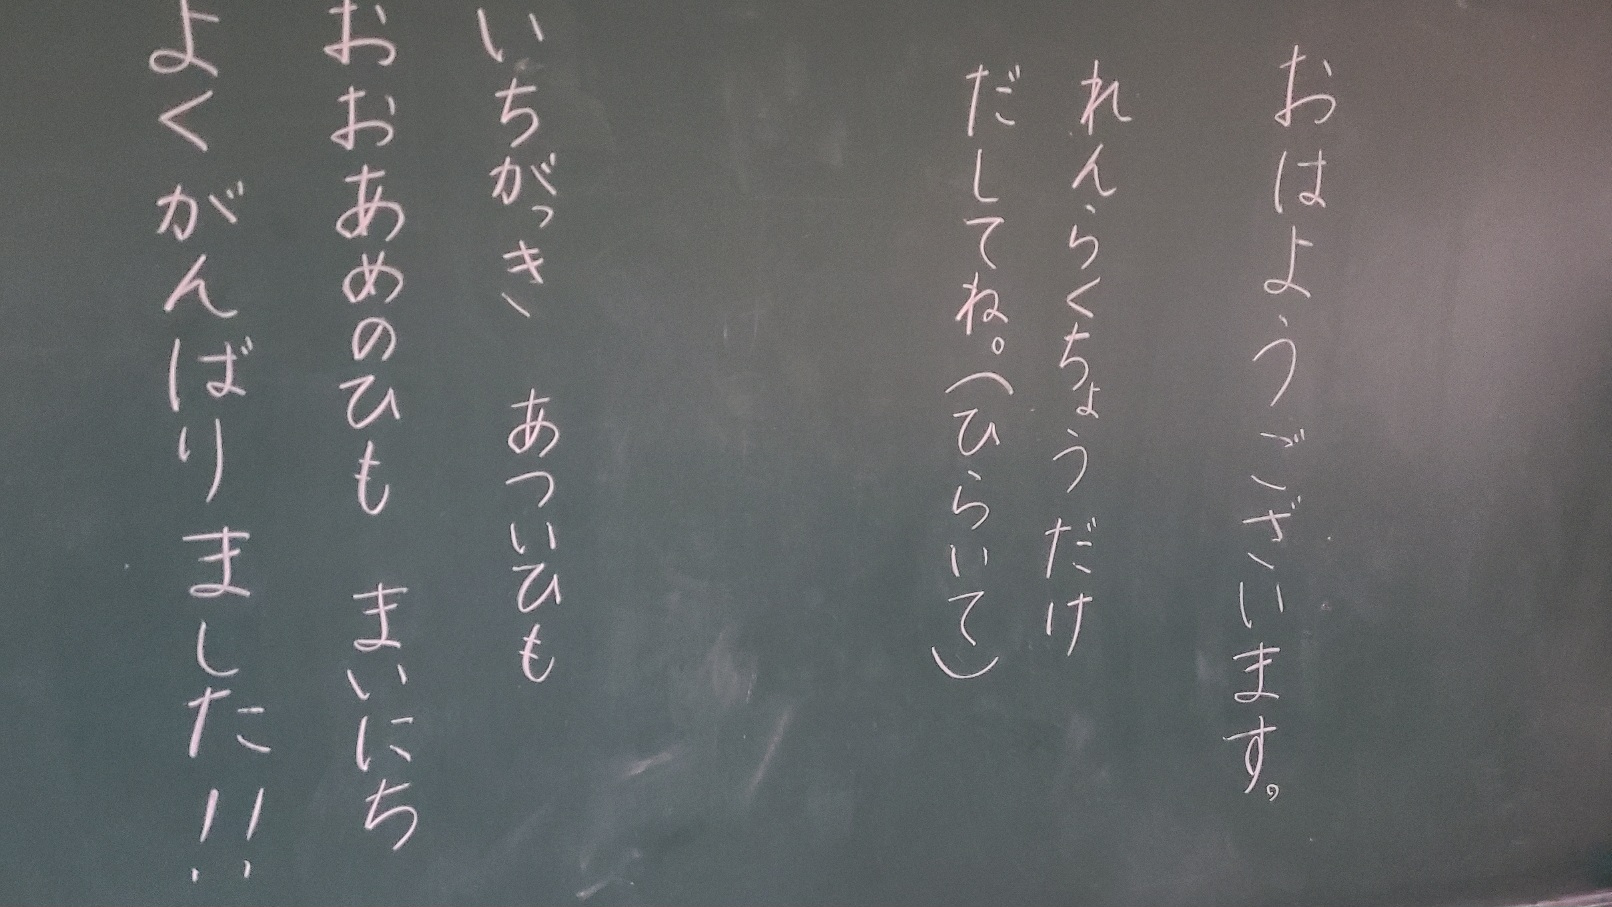 おはようございます。
れんらくちょうだけ
だしてね。(ひらいて)
いちがっき、 あついひも
おおあめのひも まいにち
よくがんばりました!!